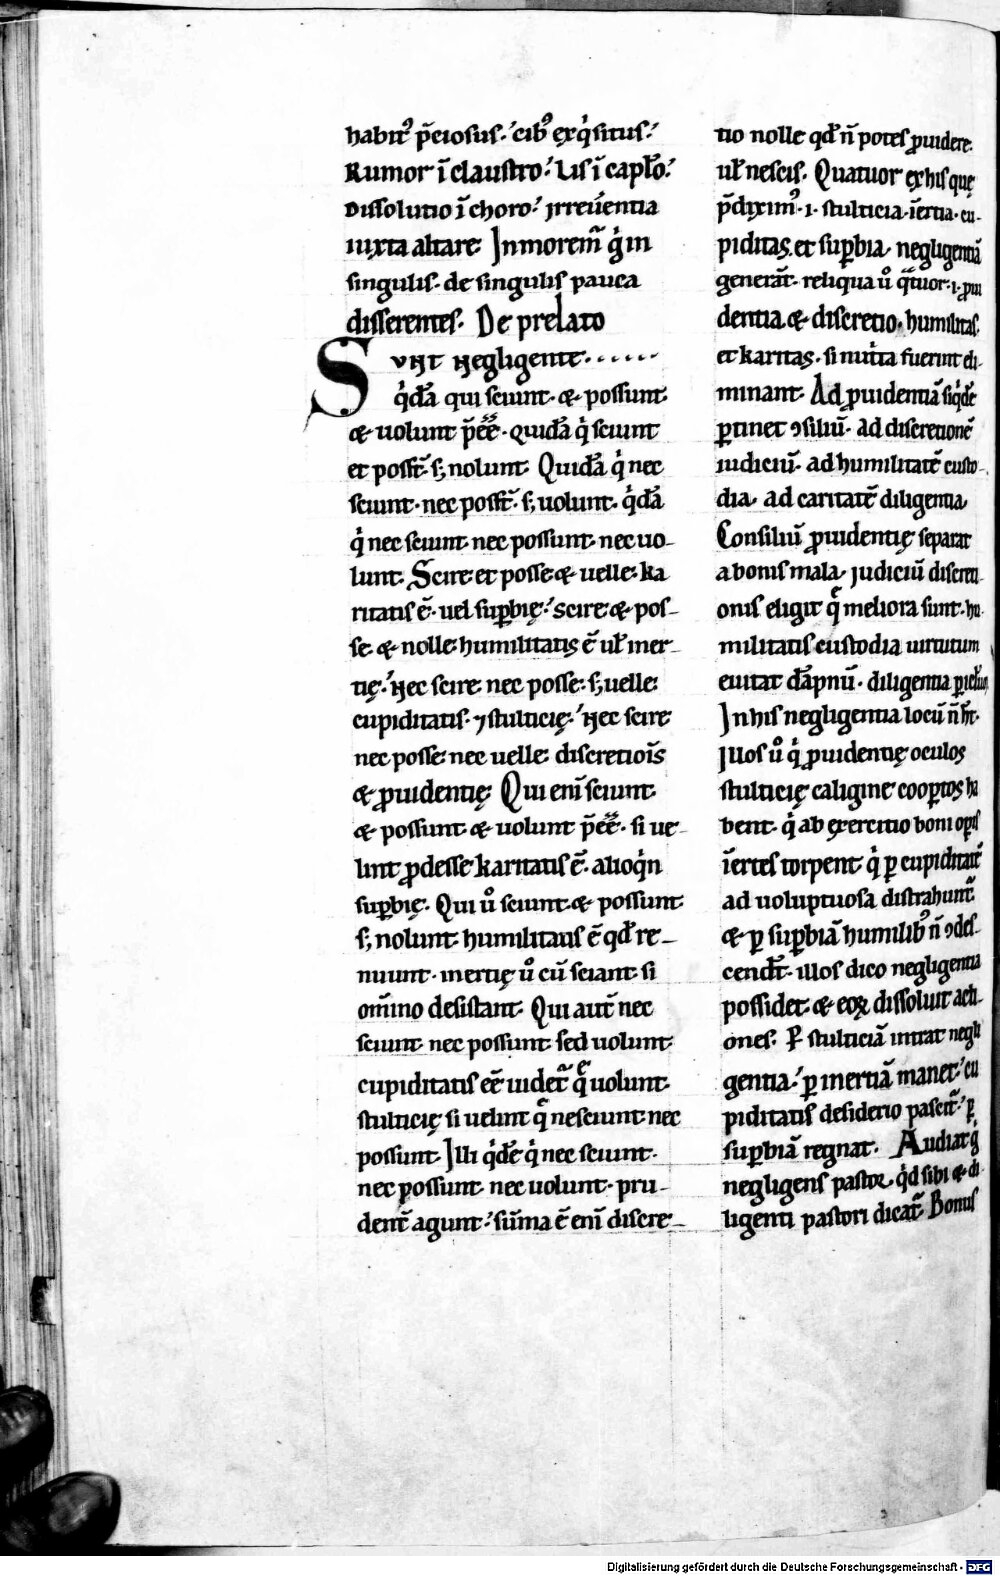 habitꝰ p̄ciosus.' cibꝰ exqͥsitus.'
Rumor ī claustro.' Lis ī capl̄o.'
Dissolutio ī choro.' jrreūentia
iuxta altare. In morem̄ qͥ in
singulis. de singulis pauca
disserentes. De prelato
Sunt negligente.....
qͥdā qui sciunt. & possunt.
& uolunt p̄eē. quidā qͥ sciunt
et posst̄. s; nolunt. Quidā qͥ nec
sciunt. nec posst̄. s; uolunt. qͥdā
qͥ nec sciunt. nec possunt. nec uo-
lunt. Scire et posse & uelle. ka
ritatis ē. uel supbię.' scire & pos-
se & nolle. humilitatis ē ul̄ iner-
tię.' Nec scire. nec posse. s; uelle.
cupiditatis. ⁊ stulticię.' Nec scire
nec posse. nec uelle. discretiōis
& ꝓuidentię. Qui enī sciunt.
& possunt & uolunt p̄eē. si ue-
lint ꝓdesse karitatis ē. alioqͥn
suꝑbię. Qui ū sciunt. & possunt
s; nolunt. humilitatis ē qd̄ re-
nuunt. inertię ū cū sciant. si
om̄ino desistant. Qui aut̄ nec
sciunt. nec possunt. sed uolunt.
cupiditatis eē uidet̄ qͤ uolunt.
stulticię si uelint qͤ nesciunt. nec
possunt. Illi qͥdē qͥ nec sciunt.
nec possunt. nec uolunt. pru-
dent̄ agunt.' sūma ē enī discre-
tio nolle qd̄ n̄ potes ꝓuidere.
ul̄ nescis. Quatuor ex his quę
p̄diximꝰ. i. stulticia. īertia. cu-
piditas. et suꝑbia. negligentiā
generāt. reliqua ū qͣtuor. i. ꝓui
dentia. & discretio. humilitas.
et karitas. si nutͥta fuerint di-
minant. Ad ꝓuidentiā siqͥdē
ꝑtinet ꝯsiliū. ad discretionē
iudiciū. ad humilitatē custo-
dia. ad caritatē diligentia.
Consiliū ꝓuidentię separat
a bonis mala. judiciū discreti
onis eligit qͤ meliora sunt. hu-
militatis custodia uirtutum
euitat dāpnū. diligentia ꝑicl̄um
In his negligentia locū n̄ ht̄.
Illos ū qͥ ꝓuidentię oculos
stulticię caligine cooꝑtos ha
bent. qͥ ab exercitio boni oꝑis
īertes torpent. qͥ ꝑ cupiditatē
ad uoluptuosa distrahunt̄.
& ꝑ suꝑbiā humilibꝰ n̄ ꝯdes-
cendt̄. illos dico negligentia
possidet. & eoꝝ dissoluit acti-
ones. Ꝑ stulticiā intrat negli
gentia.' ꝑ inertiā manet.' cu
piditatis desiderio pascit̄.' ꝑ
suꝑbiā regnat. Audiat qͥ
negligens pastor. qͥd sibi & di-
ligenti pastori dicat̄. Bonus
Digitalisierung gefördert durch die Deutsche Forschungsgemeinschaft - DFG